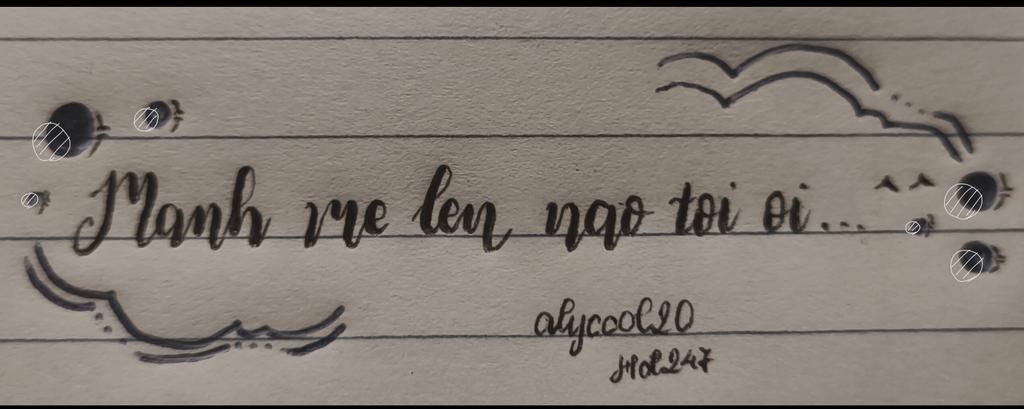 Manh me len nao toi oi... ^^
alyccol20
Hol247